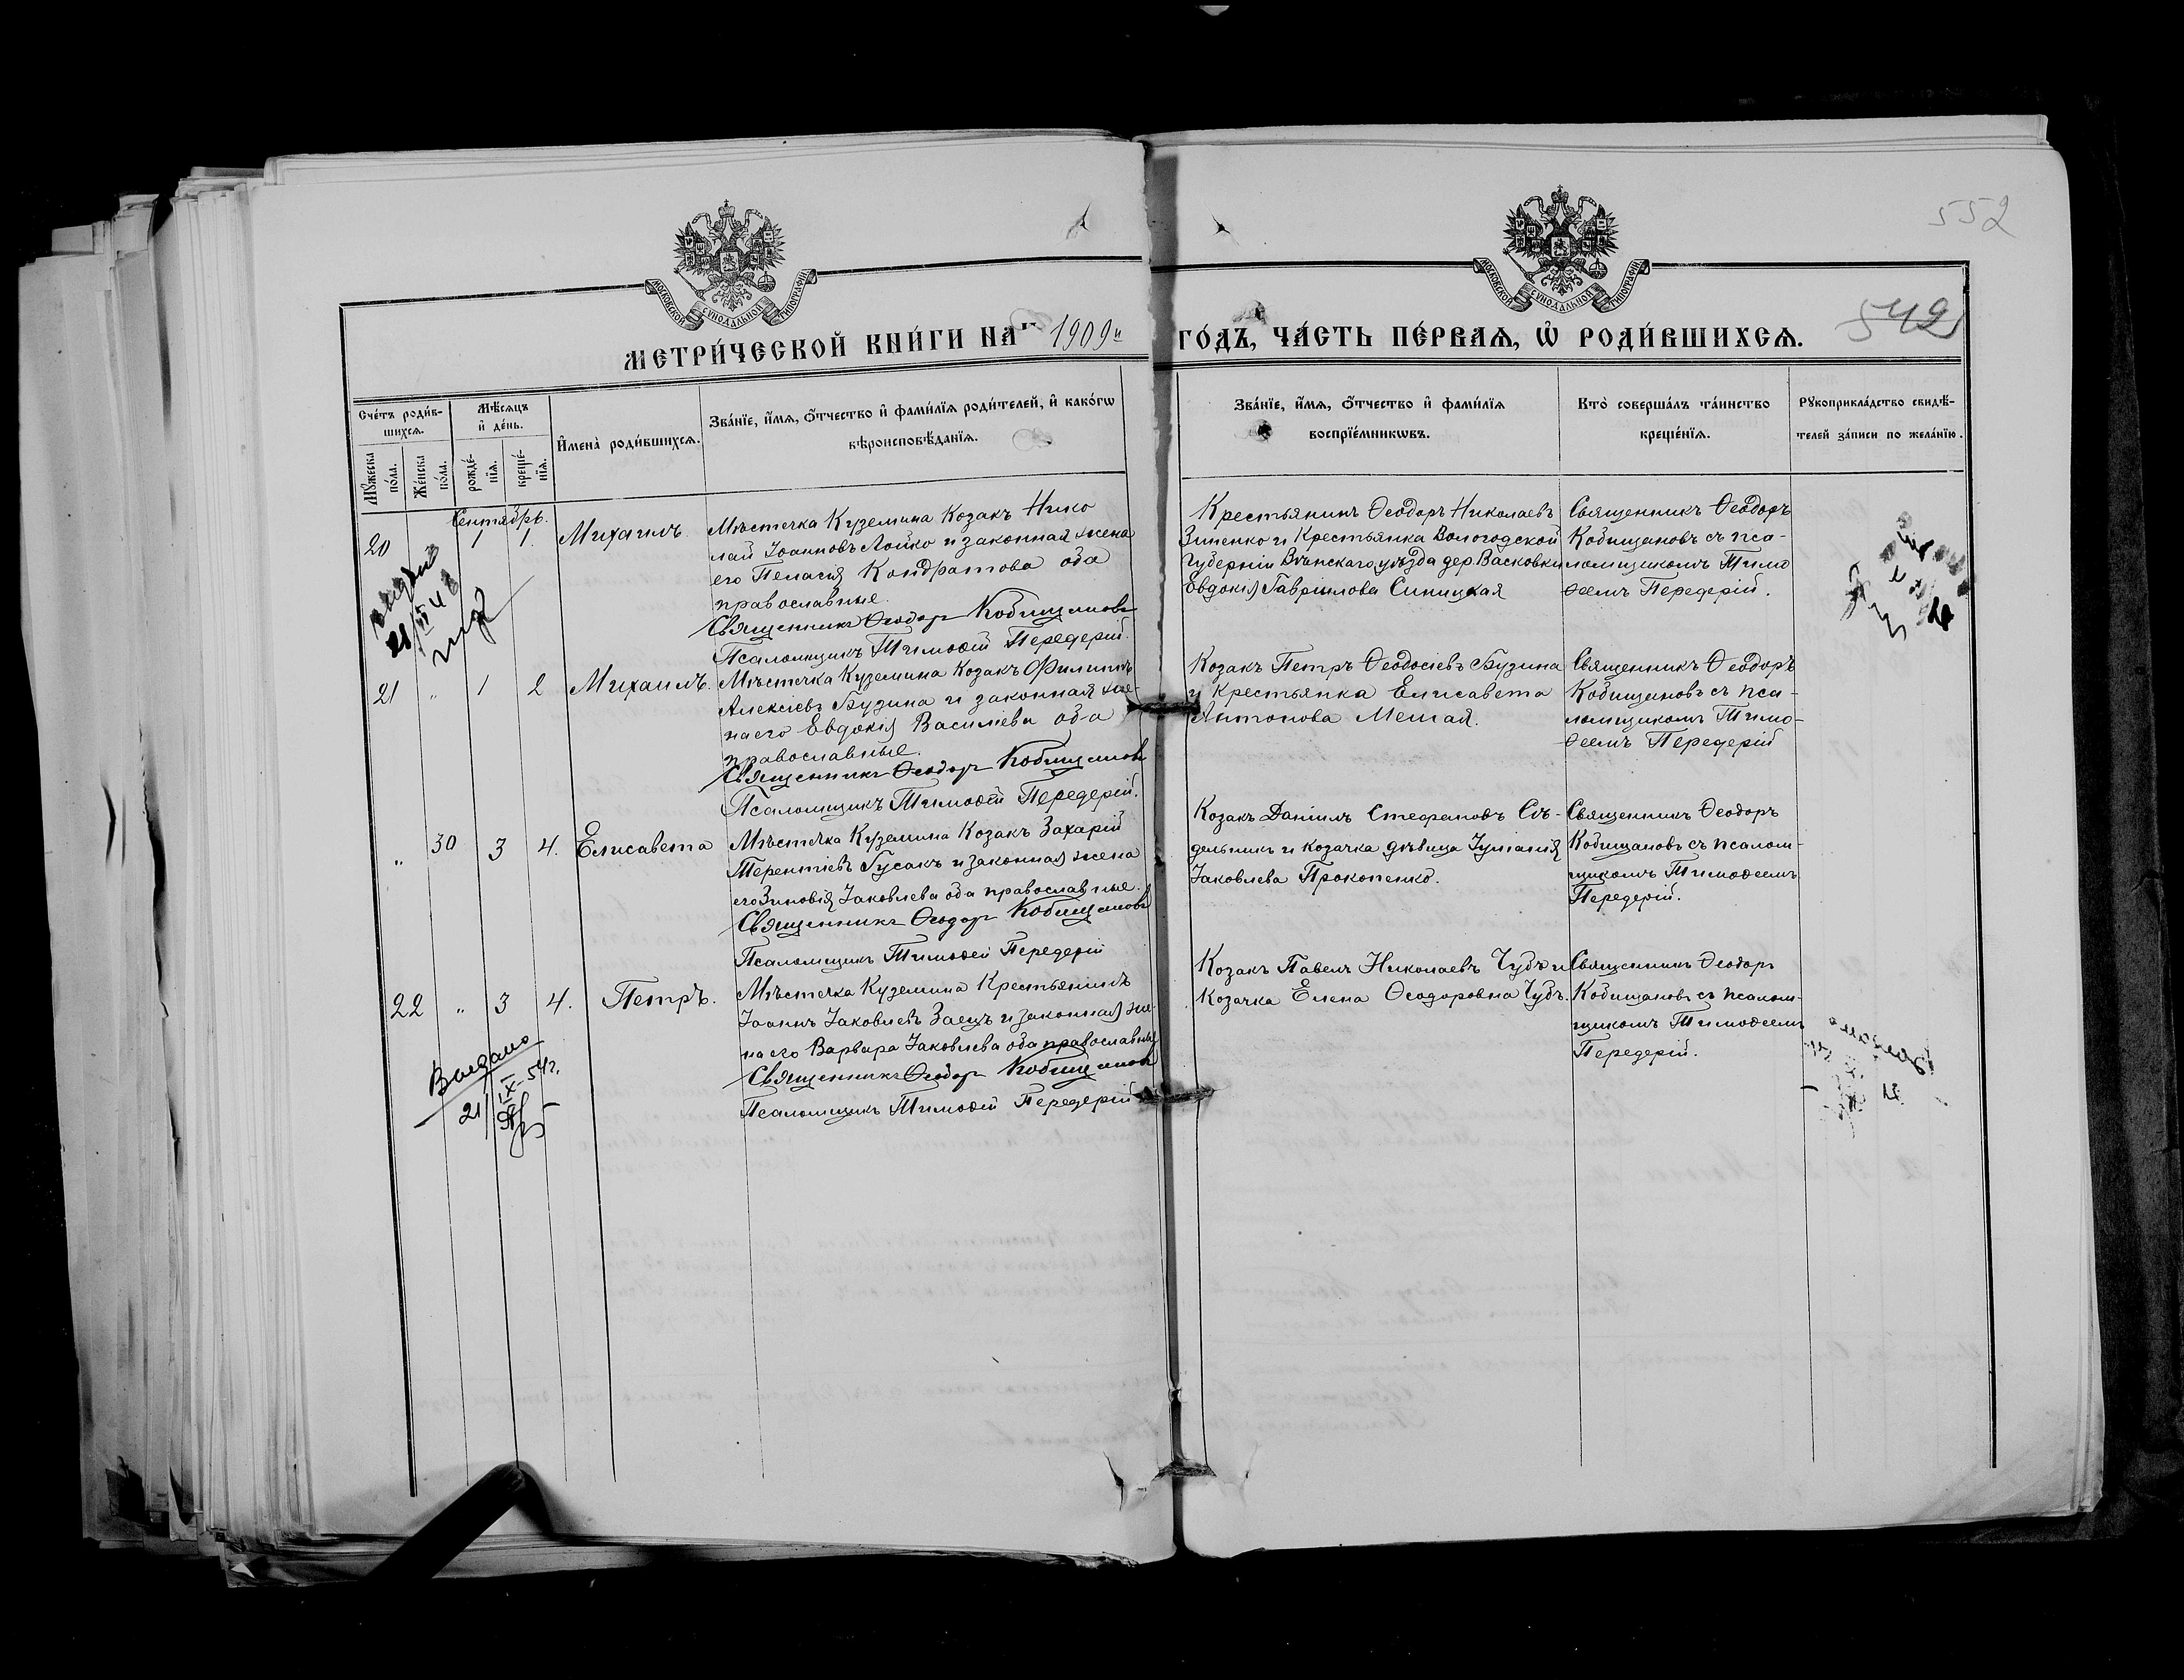 552
542
МОСКОВСКОЙ СѴНОДАЛЬНОЙ ТИПОГРАФІИ
МОСКОВСКОЙ СѴНОДАЛЬНОЙ ТИПОГРАФІИ
МЕТРИ́ЧЕСКОЙ КНИ́ГИ НА 1909й ГО́ДЪ, ЧА́СТЬ ПЕ́РВАѦ, Ѡ҆ РОДИ́ВШИХСѦ.
Сче́тъ роди́в-
шихсѧ.
Мꙋ́жеска по́ла.
Же́нска по́ла.
Мѣ́сѧцъ и҆ де́нь.
рожде́-
нїѧ.
креще́-
нїѧ.
И҆мена̀ роди́вшихсѧ.
Зва́нїе, и҆́мѧ, ѻ҆́тчество и҆ фами́лїѧ роди́телей, и҆ како́гѡ
вѣроисповѣ́данїѧ.
Зва́нїе, и҆́мѧ, ѻ҆́тчество и҆ фами́лїѧ
воспрїе́мникѡвъ.
Кто̀ соверша́лъ та́инство
креще́нїѧ.
Рꙋкоприкла́дство свидѣ́-
телей за́писи по жела́нїю.
Сентябрь.
20 1 1. Михаилъ.
Мѣстечка Куземина Козакъ Нико
лай Іоанновъ Лойко и законная жена
его Пелагія Кондратова оба
православные.
Священникъ Ѳеодоръ Кобищановъ
Псаломщикъ Тимоѳей Передерій.
Крестьянинъ Ѳеодоръ Николаевъ
Зиненко и Крестьянка Вологодской
Губерніи уѣзда дер. Васковки
Евдокія Гавріилова Синицкая
Священникъ Ѳеодоръ
Кобищановъ съ пса-
ломщикомъ Тимо
ѳеемъ Передерій.
21 " 1 2 Михаилъ.
Мѣстечка Куземина Козакъ Филиппъ
Алексіевъ Бузина и законная же-
на его Евдокія Василіева оба
православные.
Священникъ Ѳеодоръ Кобищановъ
Псаломщикъ Тимоѳей Передерій.
Козакъ Петръ Ѳеодосіевъ Бузина
и крестьянка Елисавета
Антонова Мелгая.
Священникъ Ѳеодоръ
Кобищановъ съ пса-
ломщикомъ Тимо-
ѳеемъ Передерій
" 30 3 4. Елисавета
Мѣстечка Куземина Козакъ Захарій
Терентіевъ Гусакъ и законная жена
его Зиновія Іаковлева оба православные.
Священникъ Ѳеодоръ Кобищановъ
Псаломщикъ Тимоѳей Передерій
Козакъ Даніилъ Стефановъ Съ-
дельникъ и козачка дѣвица Іуліанія
Іаковлева Прокопенко.
Священникъ Ѳеодоръ
Кобищановъ съ псалом-
щикомъ Тимоѳеемъ
Передерій.
22 " 3 4. Петръ.
Мѣстечка Куземина Крестьянинъ
Іоаннъ Іаковлевъ Заецъ и законная же-
на его Варвара Іаковлева оба православные
Священникъ Ѳеодоръ Кобищановъ
Псаломщикъ Тимоѳей Передерій
Козакъ Павелъ Николаевъ Чубъ и
Козачка Елена Ѳеодоровна Чубъ.
Священникъ Ѳеодоръ
Кобищановъ съ псалом-
щикомъ Тимоѳеемъ
Передерій.
Выдано
21/IX-54г.